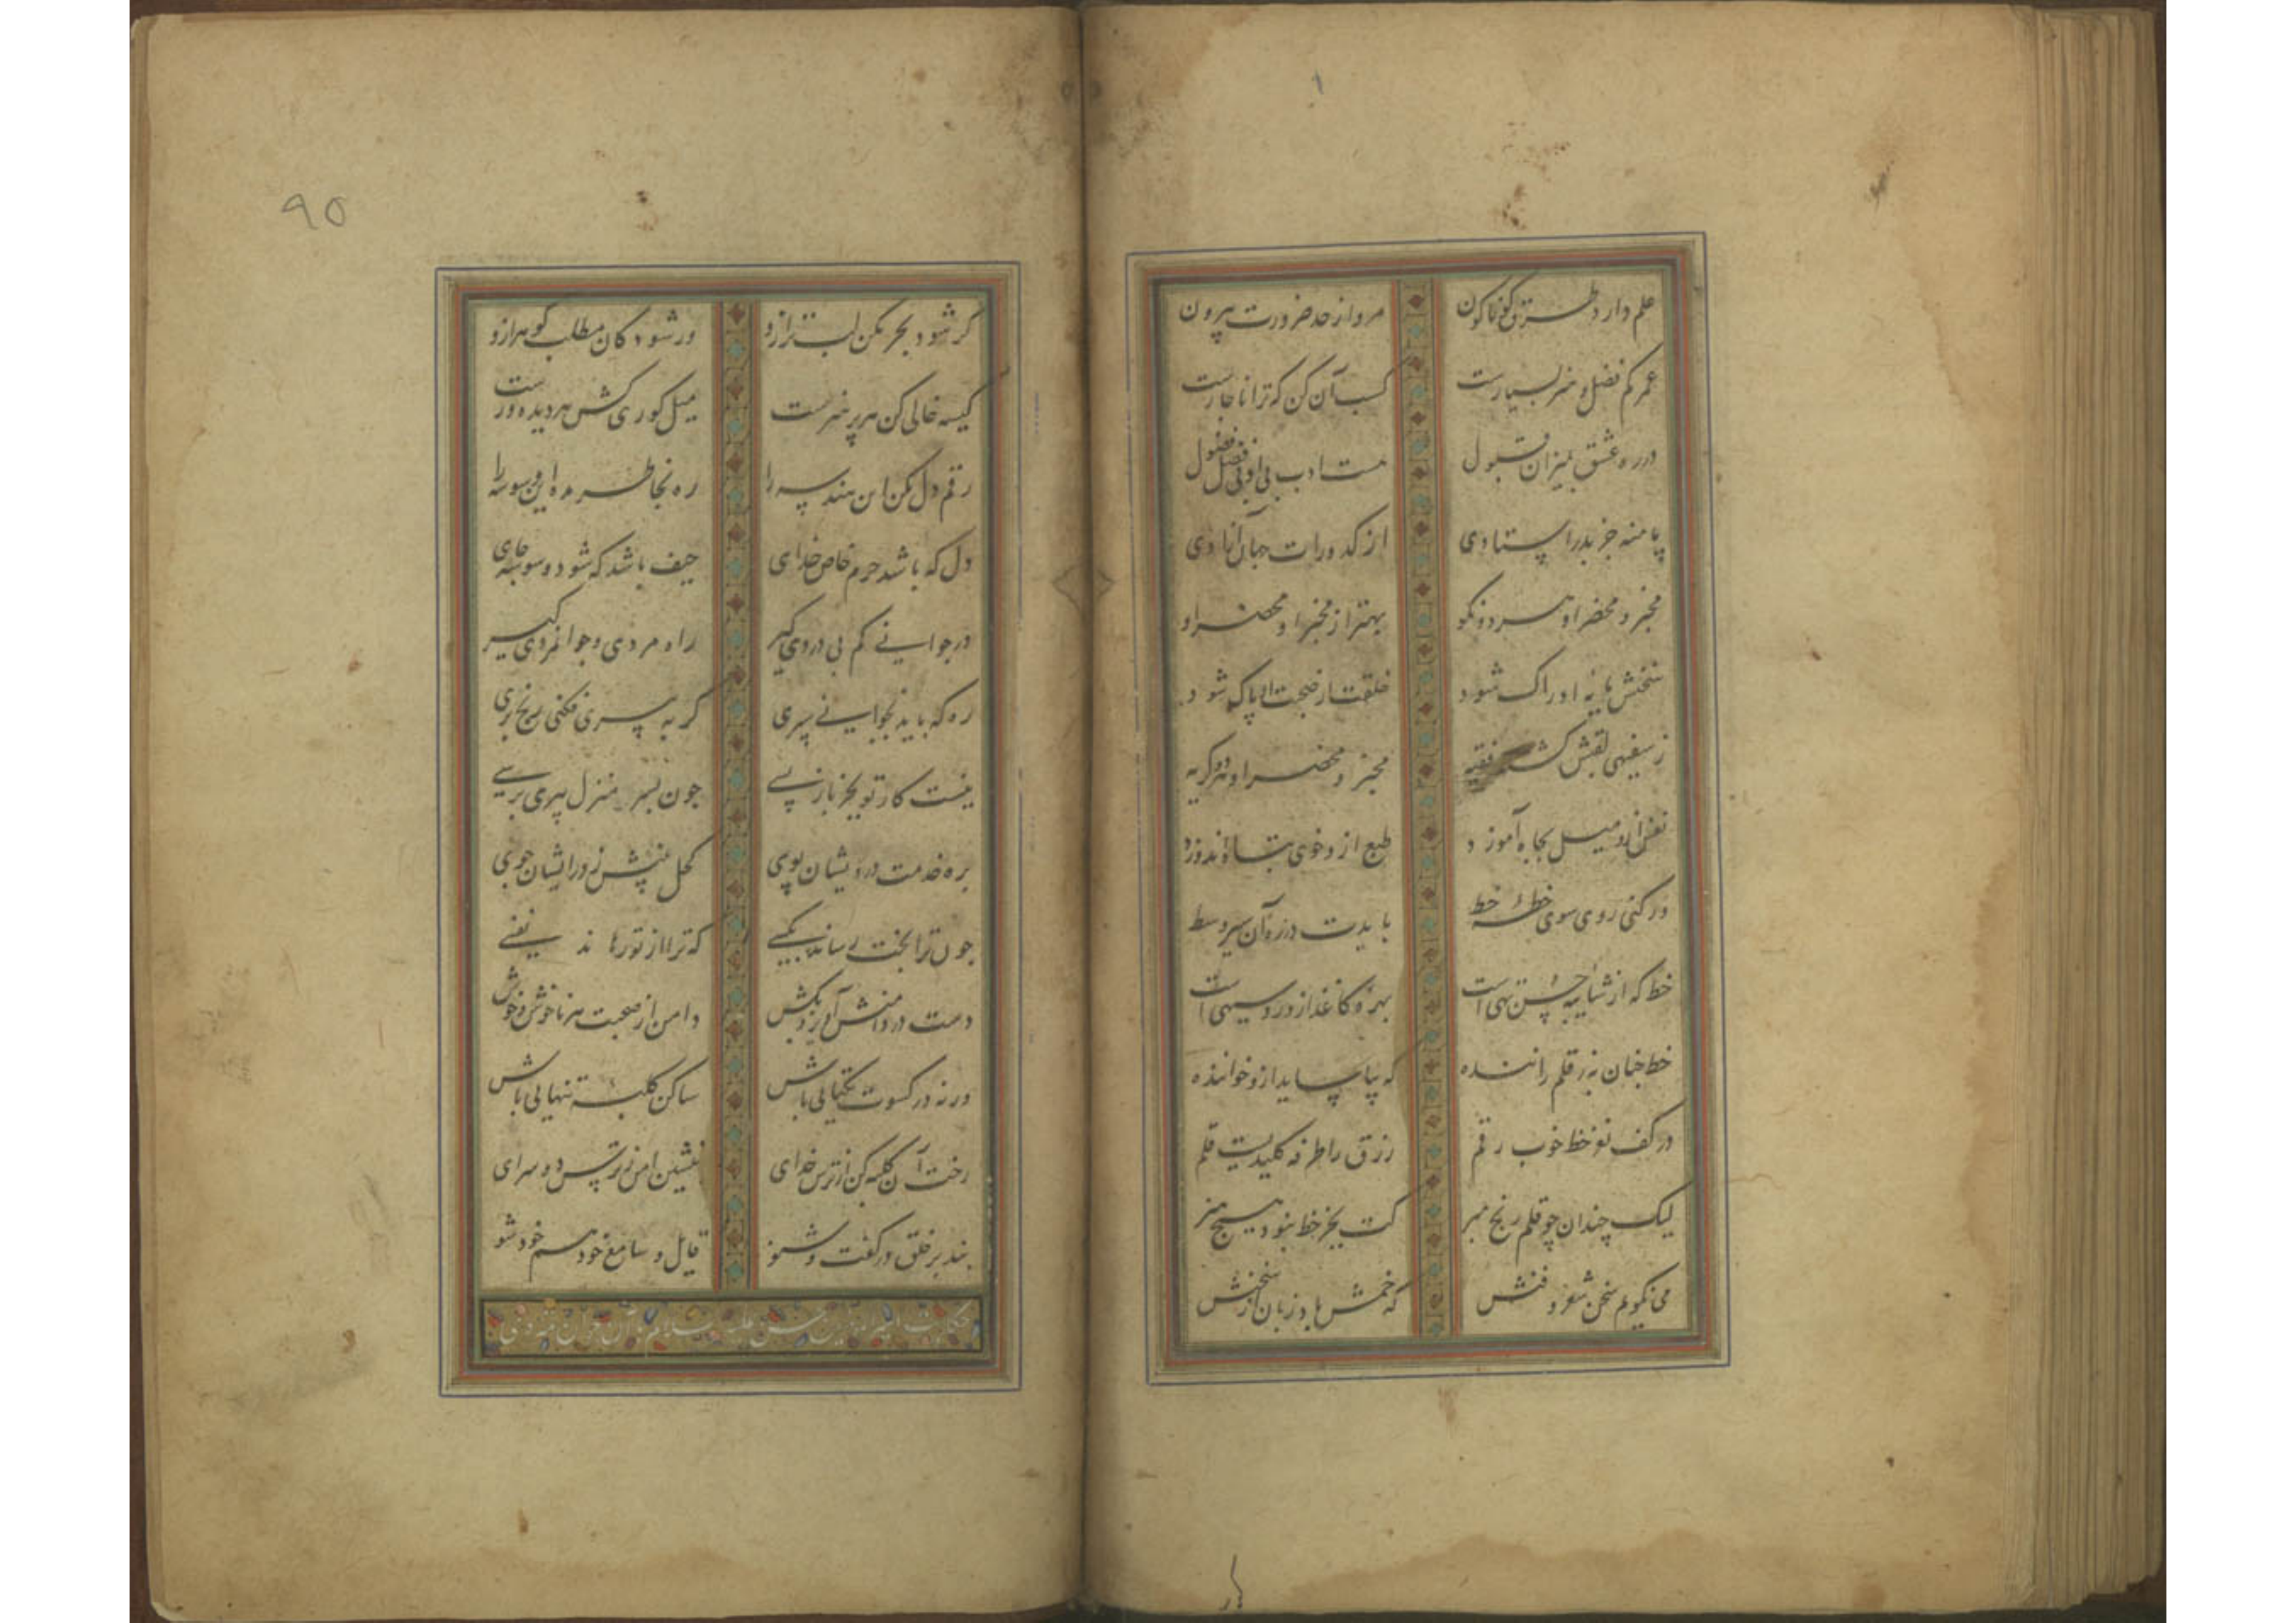 علم دارد طرق گوناگون مرو از حد ضرورت بیرون
عمر کم فضل و هنر بسیارست کسب آن کن که ترا ناچارست
در ره عشق بمیزان قبول هست ادب بی او فضل فضول
پا منه جز بدر استادی از کدورات جهان آزادی
مخبر و محضر او هر دو نکو بهتر از مخبر او محضر او
سخنش پایه ادراک شود خلقت از صحبت او پاک شود
ز سفیهی لقبش گشته فقیه مخبر و محضر او هر دو کریه
نفس ازو میل بجاه آموزد طبع ازو خوی تباه اندوزد
ور کنی روی سوی خطه خط بایدت در ره آن سیر وسط
خط که از شایبه حسن تهی است بهره کاغذ ازو روسیهی است
خط چنان به ز قلم راننده که بیاساید ازو خواننده
در کف تو خط خوب رقم رزق را طرفه کلیدیست قلم
لیک چندان چو قلم رنج مبر کت بجز خط نبود هیچ هنر
می نگویم سخن شعر و فنش که خمش باد زبان از سخنش
۹۵
گر شود بحر مکن لب تر ازو ور شود کان مطلب گوهر ازو
کیسه خالی کن هر پر هنرست میل کوری کش هر دیده ورست
رقم دل مکن این هندسه را ره بخاطر مده این وسوسه را
دل که باشد حرم خاص خدای حیف باشد که شود وسوسه جای
در جوانی کم بی دردی گیر راه مردی و جوانمردی گیر
ره که باید بجوانی سپری گر به پیری فکنی رنج بری
نیست کار تو بجز باز پسی چون بسر منزل پیری برسی
بره خدمت درویشان پوی کحل بینش ز در ایشان جوی
چون ترا بخت رساند بکسی که ترا از تو رهاند نفسی
دست در دامنش آویز و بکش دامن از صحبت هر ناخوش و خوش
ورنه در کسوت یکتایی باش ساکن کلبه تنهایی باش
رخت آن کلبه کن از ترس خدای بنشین ایمن ز پرس دو سرای
بند بر خلق در گفت و شنو قایل و سامع خود هم خود شو